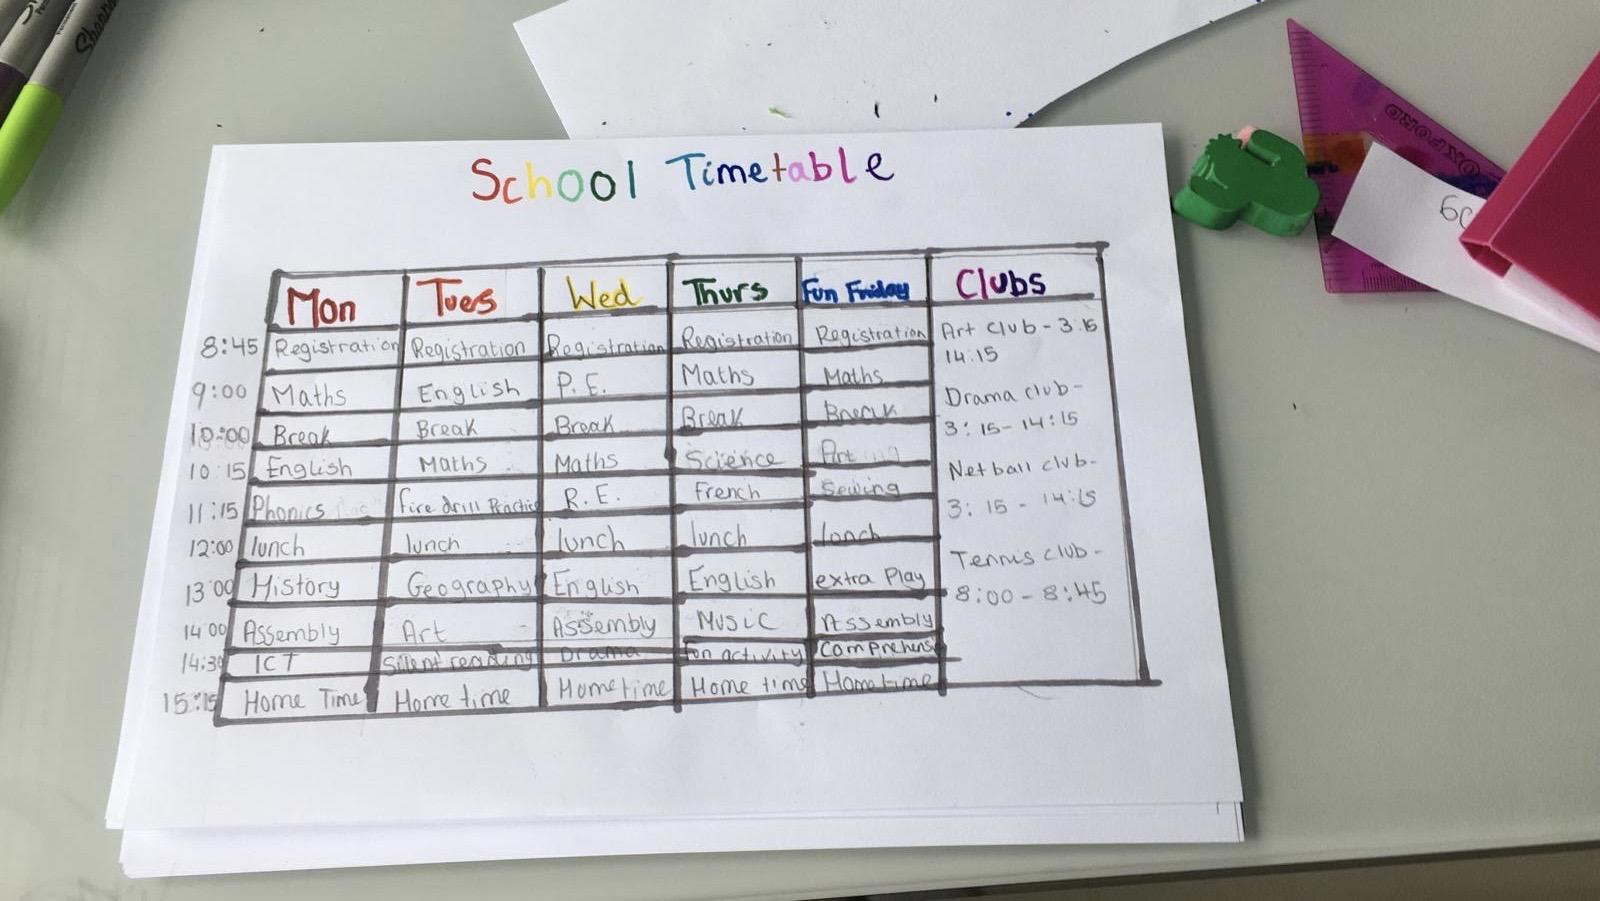 Sharpie
OXFORD
School Timetable
Mon Tues Wed Thurs Fun Friday Clubs
8:45 Registration Registration Registration Registration Registration
9:00 Maths English P.E. Maths Maths
10:00 Break Break Break Break Break
10:15 English Maths Maths Science Art
11:15 Phonics fire drill Practice R.E. French Sewing
12:00 lunch lunch lunch lunch lunch
13:00 History Geography English English extra Play
14:00 Assembly Art Assembly Music Assembly
14:30 ICT Silent reading Drama Fun activity Comprehens
15:15 Home Time Home time Home time Home time Home time
Art Club - 3:15
14:15
Drama club -
3:15 - 14:15
Netball club -
3:15 - 14:15
Tennis club -
8:00 - 8:45